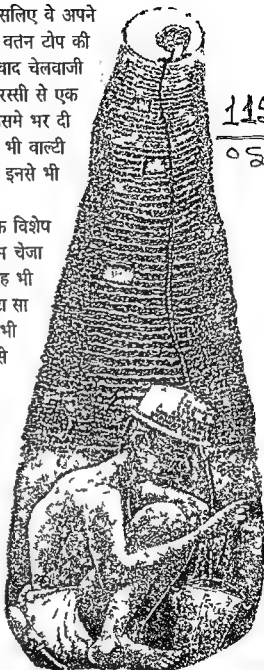 सलिए वे अपने
वर्तन टोप की
वाद चेलवाजी
रस्सी से एक
समे भर दी
भी वाल्टी
इनसे भी
क विशेप
चेजा
ह भी
टा सा
भी
से
115